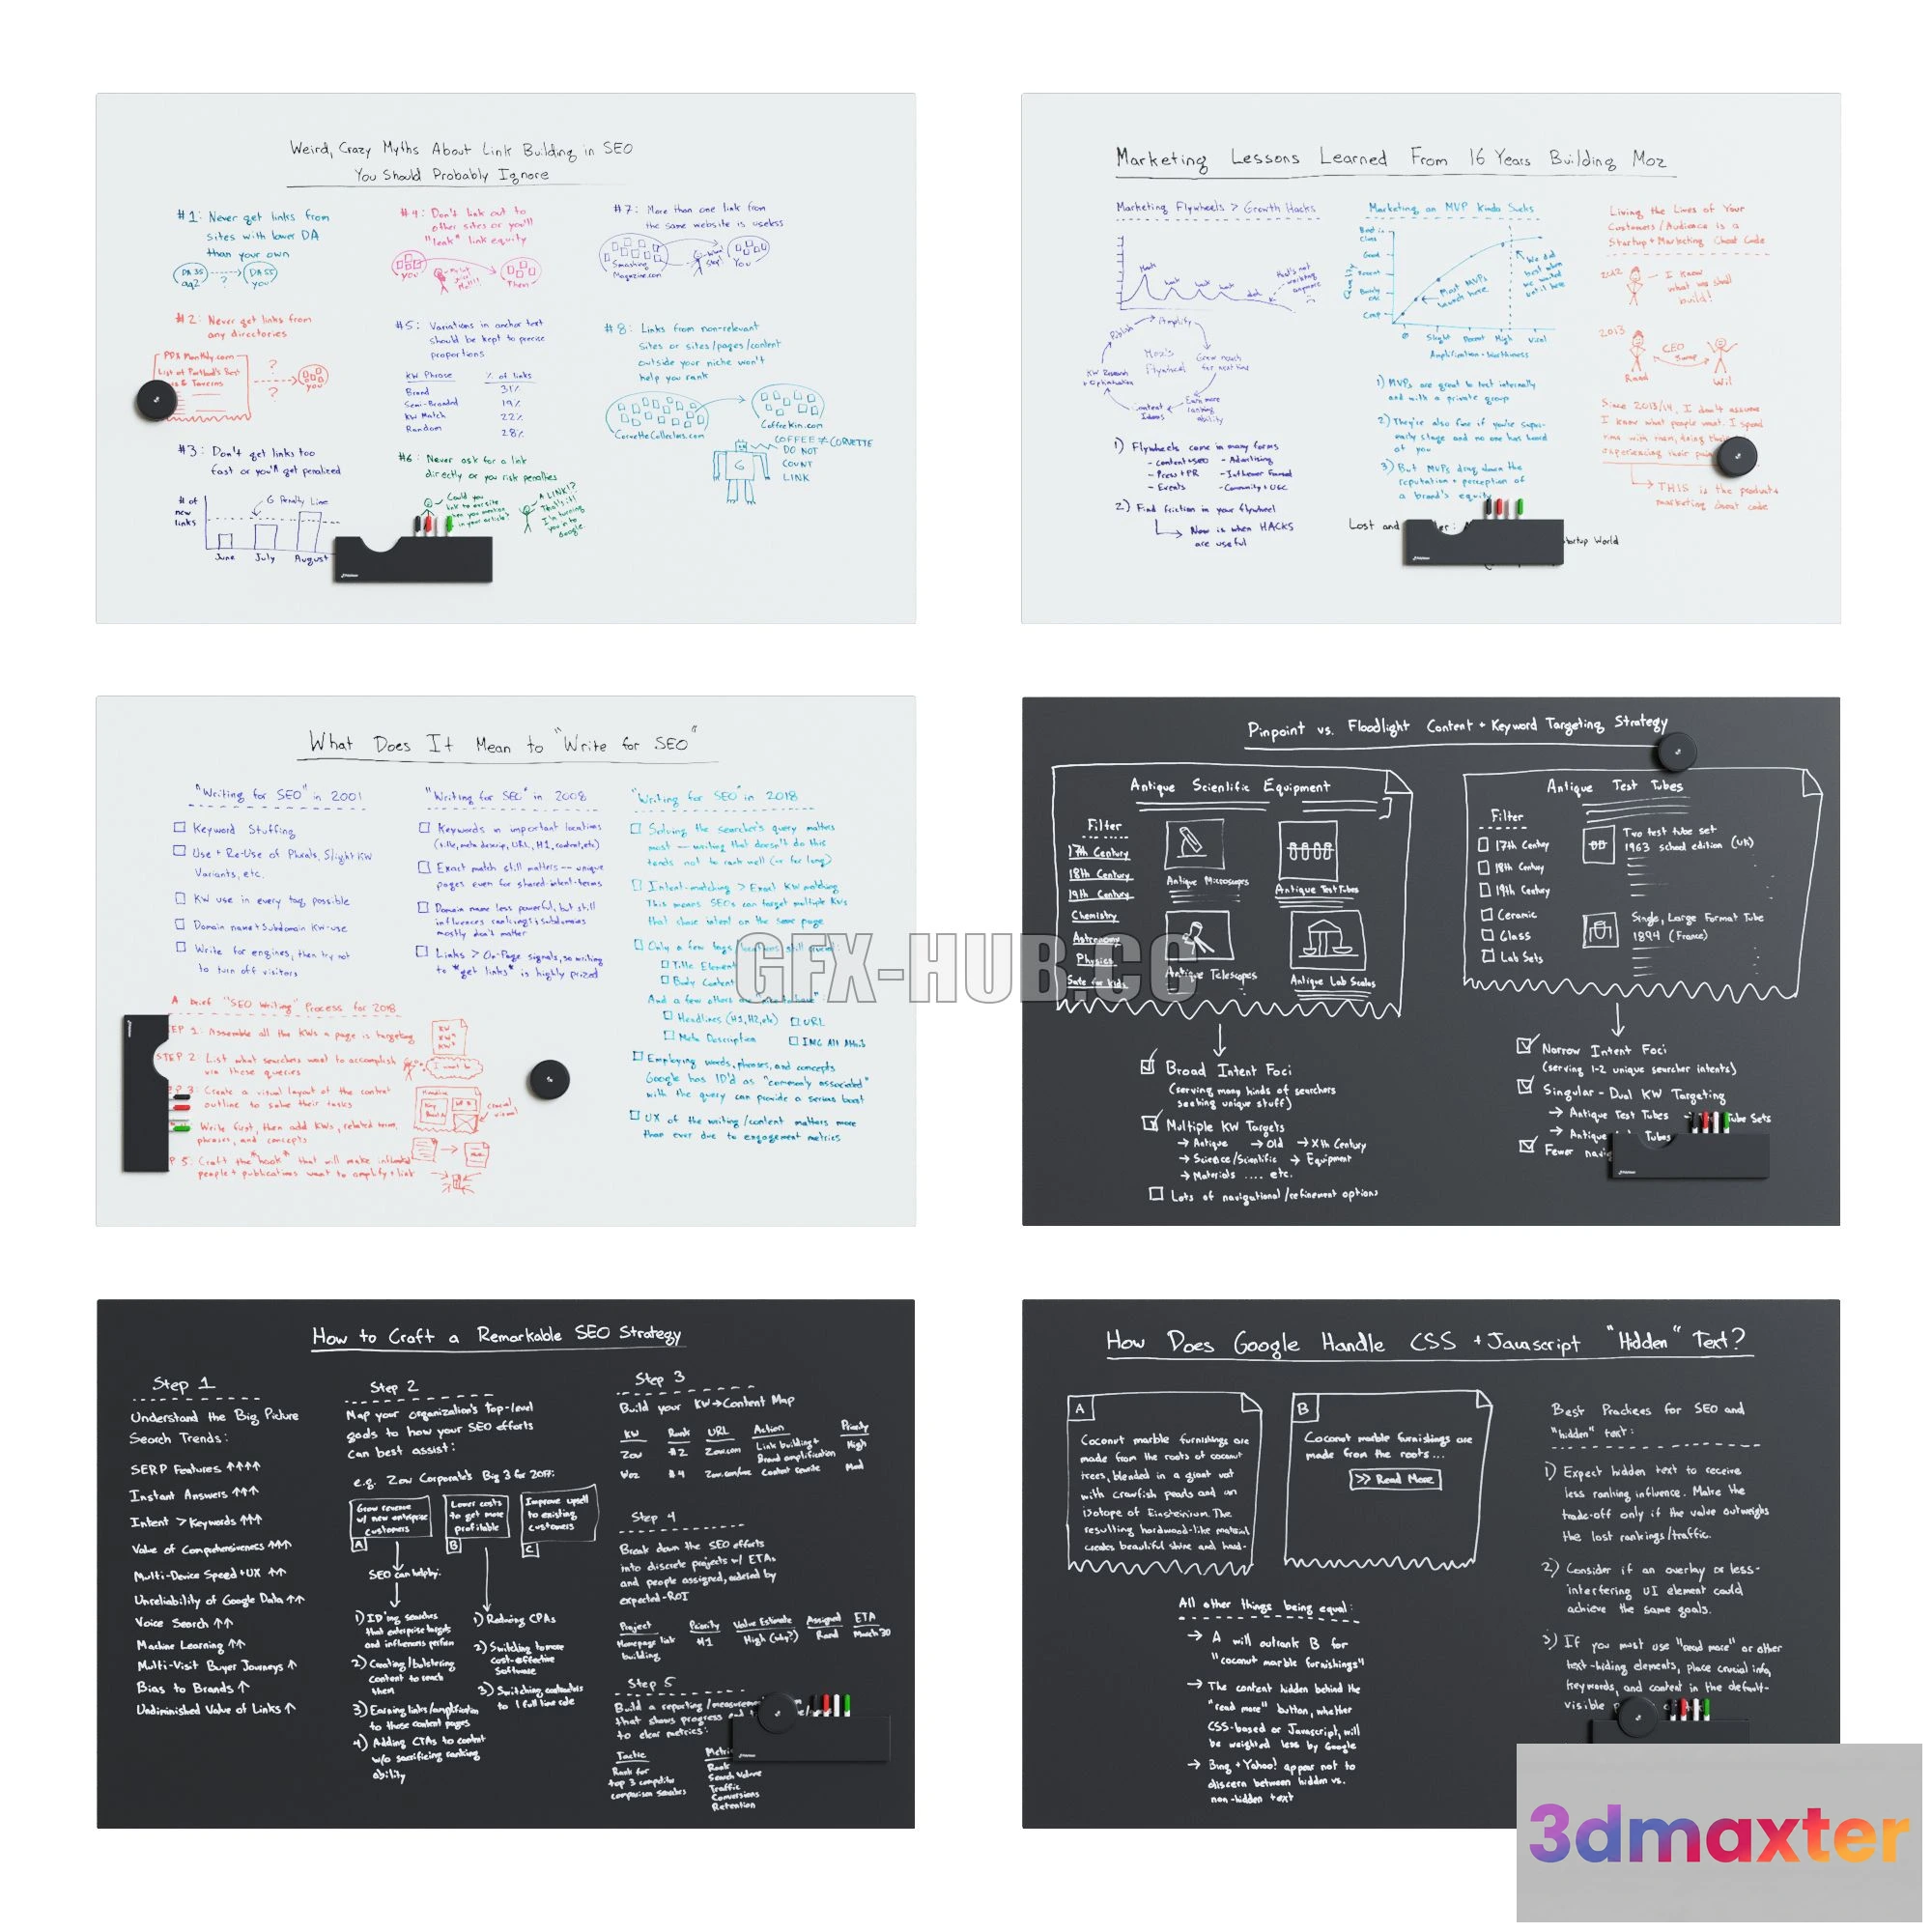 Weird, Crazy Myths About Link Building in SEO
You Should Probably Ignore
#1: Never get links from
sites with lower DA
than your own
DA 35
DA 55
you
?
#2: Never get links from
any directories
PDX Monthly.com
List of Portland's Best
& Taverns
?
?
you
#3: Don't get links too
fast or you'll get penalized
# of
new
links
G Penalty Line
June July August
#4: Don't link out to
other sites or you'll
"leak" link equity
you
Them
#5: Variations in anchor text
should be kept to precise
proportions
KW Phrase % of links
Brand 31%
Semi-Branded 19%
KW Match 22%
Random 28%
#6: Never ask for a link
directly or you risk penalties
Could you
link to our site
when you mention
in your article?
A LINK!?
That's it!
I'm turning
you in to
Google
#7: More than one link from
the same website is useless
Smashing
Magazine.com
You
#8: Links from non-relevant
sites or sites/pages/content
outside your niche won't
help you rank
CorvetteCollectors.com
CoffeeKin.com
G
COFFEE ≠ CORVETTE
DO NOT
COUNT
LINK
Marketing Lessons Learned From 16 Years Building Moz
Marketing Flywheels > Growth Hacks
Hack
hack
hack
hack
that's not
working
anymore
Publish
Amplify
Grow reach
for next time
Earn more
ranking
ability
Content
Ideas
KW Research
+ Optimization
Moz's
Flywheel
1) Flywheels come in many forms
- Content+SEO - Advertising
- Press+PR - Influencer Focused
- Events - Community+UGC
2) Find friction in your flywheel
Now is when HACKS
are useful
Marketing an MVP Kinda Sucks
Best in
Class
Good
Decent
Barely
OK
Crap
Quality
Most MVPs
launch here
We did
best when
we waited
until here
Slight Decent High Viral
Amplification-Worthiness
1) MVPs are great to test internally
and with a private group
2) They're also fine if you're super-
early stage and no one has heard
of you
3) But MVPs drag down the
reputation + perception of
a brand's equity
Lost and
Startup World
Living the Lives of Your
Customers/Audience is a
Startup + Marketing Cheat Code
2012
I know
what we shall
build!
2013
CEO
Swap
Rand
Wil
Since 2013/14, I don't assume
I know what people want. I spend
time with them, living their
experiencing their pain
THIS is the product+
marketing cheat code
What Does It Mean to "Write for SEO"
"Writing for SEO" in 2001
Keyword Stuffing
Use + Re-Use of Phrases, Slight KW
Variants, etc.
KW use in every tag possible
Domain name + Subdomain KW-use
Write for engines, then try not
to turn off visitors
"Writing for SEO" in 2008
Keywords in important locations
(title, meta descrip, URL, H1, content, etc)
Exact match still matters -- unique
pages even for shared-intent-terms
Domain name less powerful, but still
influences rankings; subdomains
mostly don't matter
Links > On-Page signals, so writing
to *get links* is highly prized
"Writing for SEO" in 2018
Solving the searcher's query matters
most — writing that doesn't do this
tends not to rank well (or for long)
Intent-matching > Exact KW matching
This means SEOs can target multiple KWs
that share intent on the same page
Only a few tags
Title Element
Body Content
And a few others are
Headlines (H1, H2, etc) URL
Meta Description IMG Alt Attrib
Employing words, phrases, and concepts
Google has ID'd as "commonly associated"
with the query can provide a serious boost
UX of the writing/content matters more
than ever due to engagement metrics
A brief "SEO Writing" Process for 2018
EP 1: Assemble all the KWs a page is targeting
STEP 2 List what searchers want to accomplish
via these queries
P 3: Create a visual layout of the content
outline to solve their tasks
Write first, then add KWs, related terms,
phrases, and concepts
P 5: Craft the "hook" that will make influential
people + publications want to amplify + link
KW
KW
KW
I want to
Pinpoint vs. Floodlight Content + Keyword Targeting Strategy
Antique Scientific Equipment
Filter
17th Century
18th Century
19th Century
Chemistry
Astronomy
Physics
Safe for kids
Antique Microscopes
Antique Test Tubes
Antique Telescopes
Antique Lab Scales
Broad Intent Foci
(serving many kinds of searchers
seeking unique stuff)
Multiple KW Targets
→ Antique → Old → Xth Century
→ Science/Scientific → Equipment
→ Materials .... etc.
Lots of navigational/refinement options
Antique Test Tubes
Filter
17th Century
18th Century
19th Century
Ceramic
Glass
Lab Sets
Two test tube set
1963 school edition (UK)
Single, Large Format Tube
1894 (France)
Narrow Intent Foci
(serving 1-2 unique searcher intents)
Singular - Dual KW Targeting
→ Antique Test Tubes
Tube Sets
→ Antique Tubes
Fewer navi
GFX-HUB.CC
How to Craft a Remarkable SEO Strategy
Step 1
Understand the Big Picture
Search Trends:
SERP Features ↑↑↑↑
Instant Answers ↑↑↑
Intent > Keywords ↑↑↑
Value of Comprehensiveness ↑↑↑
Multi-Device Speed + UX ↑↑
Unreliability of Google Data ↑↑
Voice Search ↑↑
Machine Learning ↑↑
Multi-Visit Buyer Journeys ↑
Bias to Brands ↑
Undiminished Value of Links ↑
Step 2
Map your organization's top-level
goals to how your SEO efforts
can best assist:
e.g. Zow Corporate's Big 3 for 2017:
Grow revenue
w/ new enterprise
customers
A
Lower costs
to get more
profitable
B
Improve upsell
to existing
customers
C
SEO can help by:
1) ID'ing searches
that enterprise targets
and influencers perform
2) Creating/bolstering
content to reach
them
3) Earning links/amplification
to those content pages
4) Adding CTAs to content
w/o sacrificing ranking
ability
1) Reducing CPAs
2) Switching to more
cost-effective
software
3) Switching contractors
to 1 full time role
Step 3
Build your KW→Content Map
KW Rank URL Action Priority
Zow #2 Zow.com Link building +
Brand amplification High
Woz #4 Content rewrite Med
Step 4
Break down the SEO efforts
into discrete projects w/ ETAs
and people assigned, ordered by
expected-ROI
Project Priority Value Estimate Assigned ETA
Homepage link
building #1 High (why?) Rand March 30
Step 5
Build a reporting/measurement
that shows progress
to clear metrics:
Tactic
Rank for
top 3 competitor
comparison searches
Metri
Rank
Search Volume
Traffic
Conversions
Retention
How Does Google Handle CSS + Javascript "Hidden" Text?
A
Coconut marble furnishings are
made from the roots of coconut
trees, blended in a giant vat
with crawfish pearls and an
isotope of Einsteinium. The
resulting hardwood-like material
creates beautiful shine and hard-
B
Coconut marble furnishings are
made from the roots...
>> Read More
All other things being equal:
→ A will outrank B for
"coconut marble furnishings"
→ The content hidden behind the
"read more" button, whether
CSS-based or Javascript, will
be weighted less by Google
→ Bing + Yahoo! appear not to
discern between hidden vs.
non-hidden text
Best Practices for SEO and
"hidden" text:
1) Expect hidden text to receive
less ranking influence. Make the
trade-off only if the value outweighs
the lost rankings/traffic.
2) Consider if an overlay or less-
interfering UI element could
achieve the same goals.
3) If you must use "read more" or other
text-hiding elements, place crucial info,
keywords, and content in the default-
visible
3dmaxter